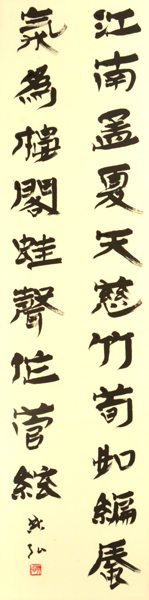 江南孟夏天慈竹筍如編蜃
氣為樓閣蛙聲作管絃